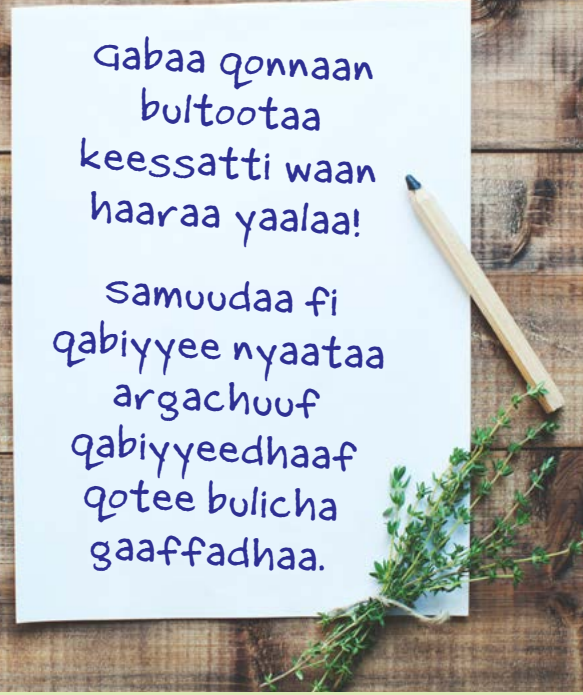 Gabaa qonnaan
bultootaa
keessatti waan
haaraa yaalaa!
Samuudaa fi
qabiyyee nyaataa
argachuuf
qabiyyeedhaaf
qotee bulicha
gaaffadhaa.